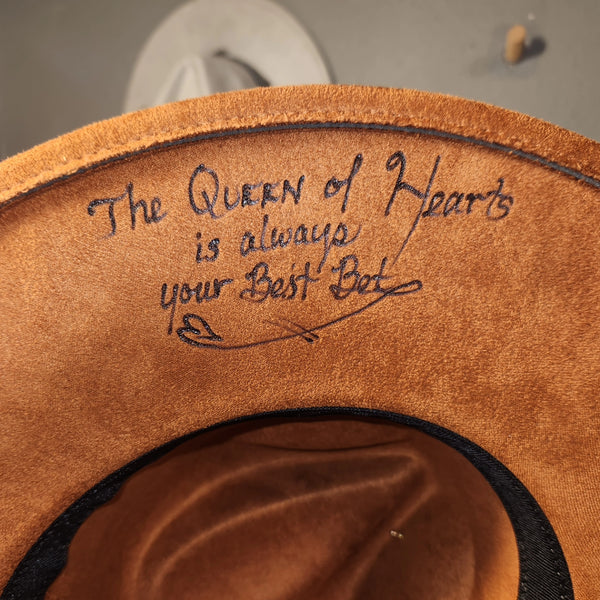 The QUEEN of Hearts
is always
your Best Bet